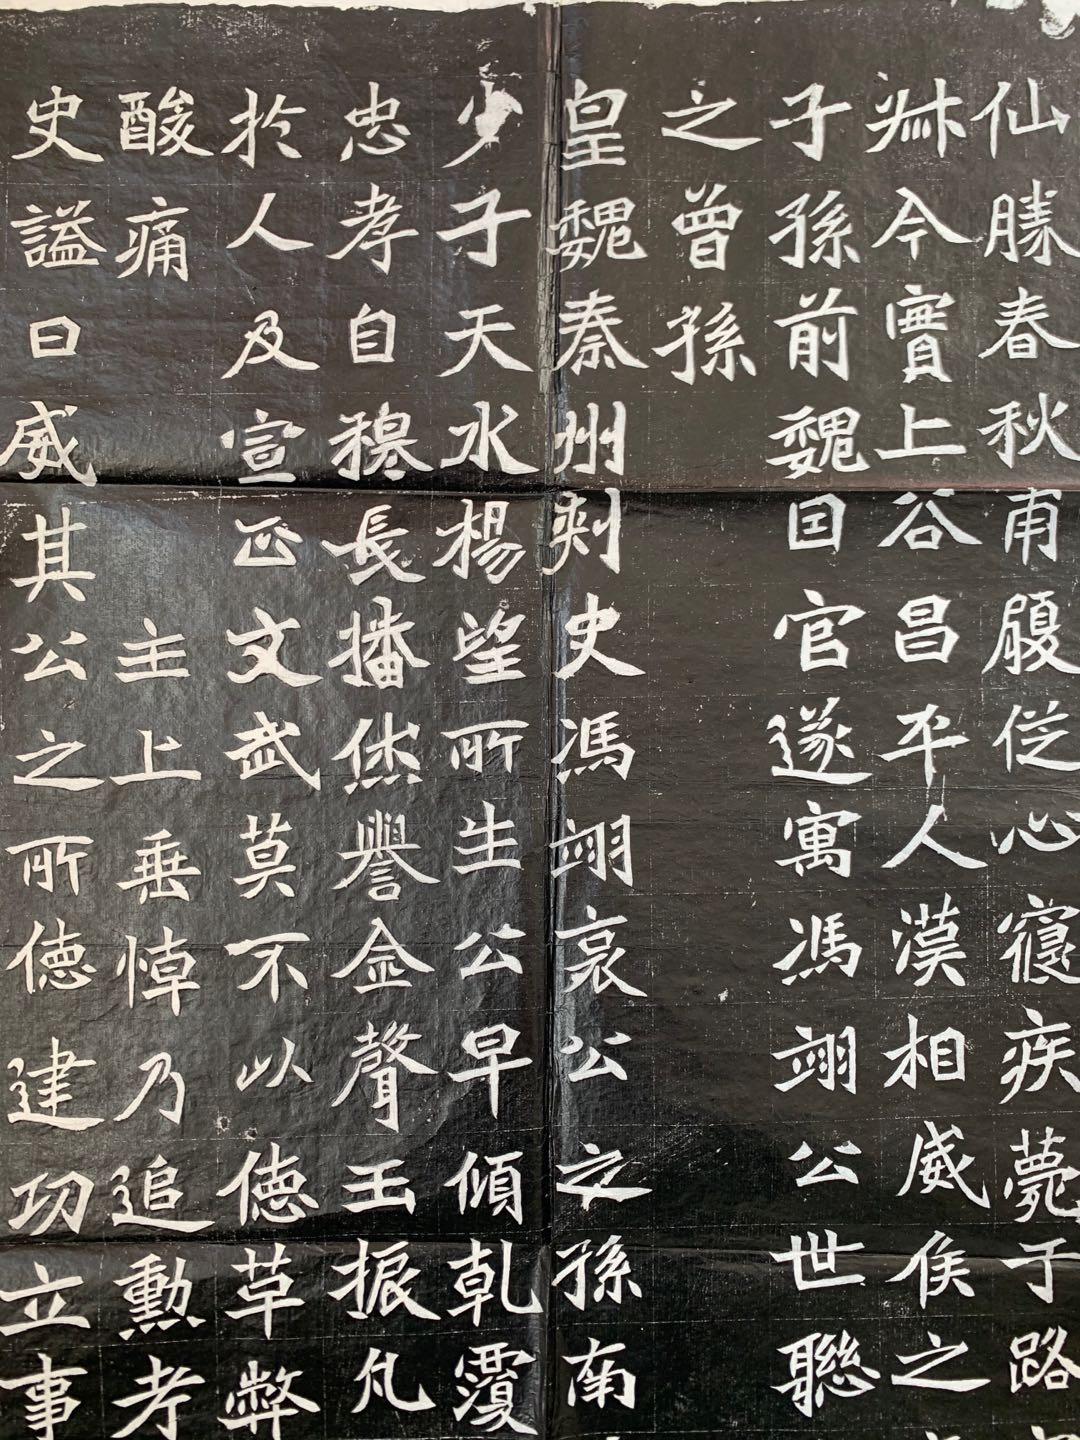 仙勝春秋甫履従心寝疾薨于路
㢤今實上谷昌平人漢相威侯之
子孫前魏因官遂寓馮翊公世聯
之曽孫
皇魏秦州刾史馮翊哀公之孫南
少子天水楊望所生公早傾乹覆
忠孝自穆長播休譽金聲玉振凡
於人及宣政文武莫不以徳草弊
酸痛 主上垂悼乃追勳考
史謚曰威其公之所徳建功立事